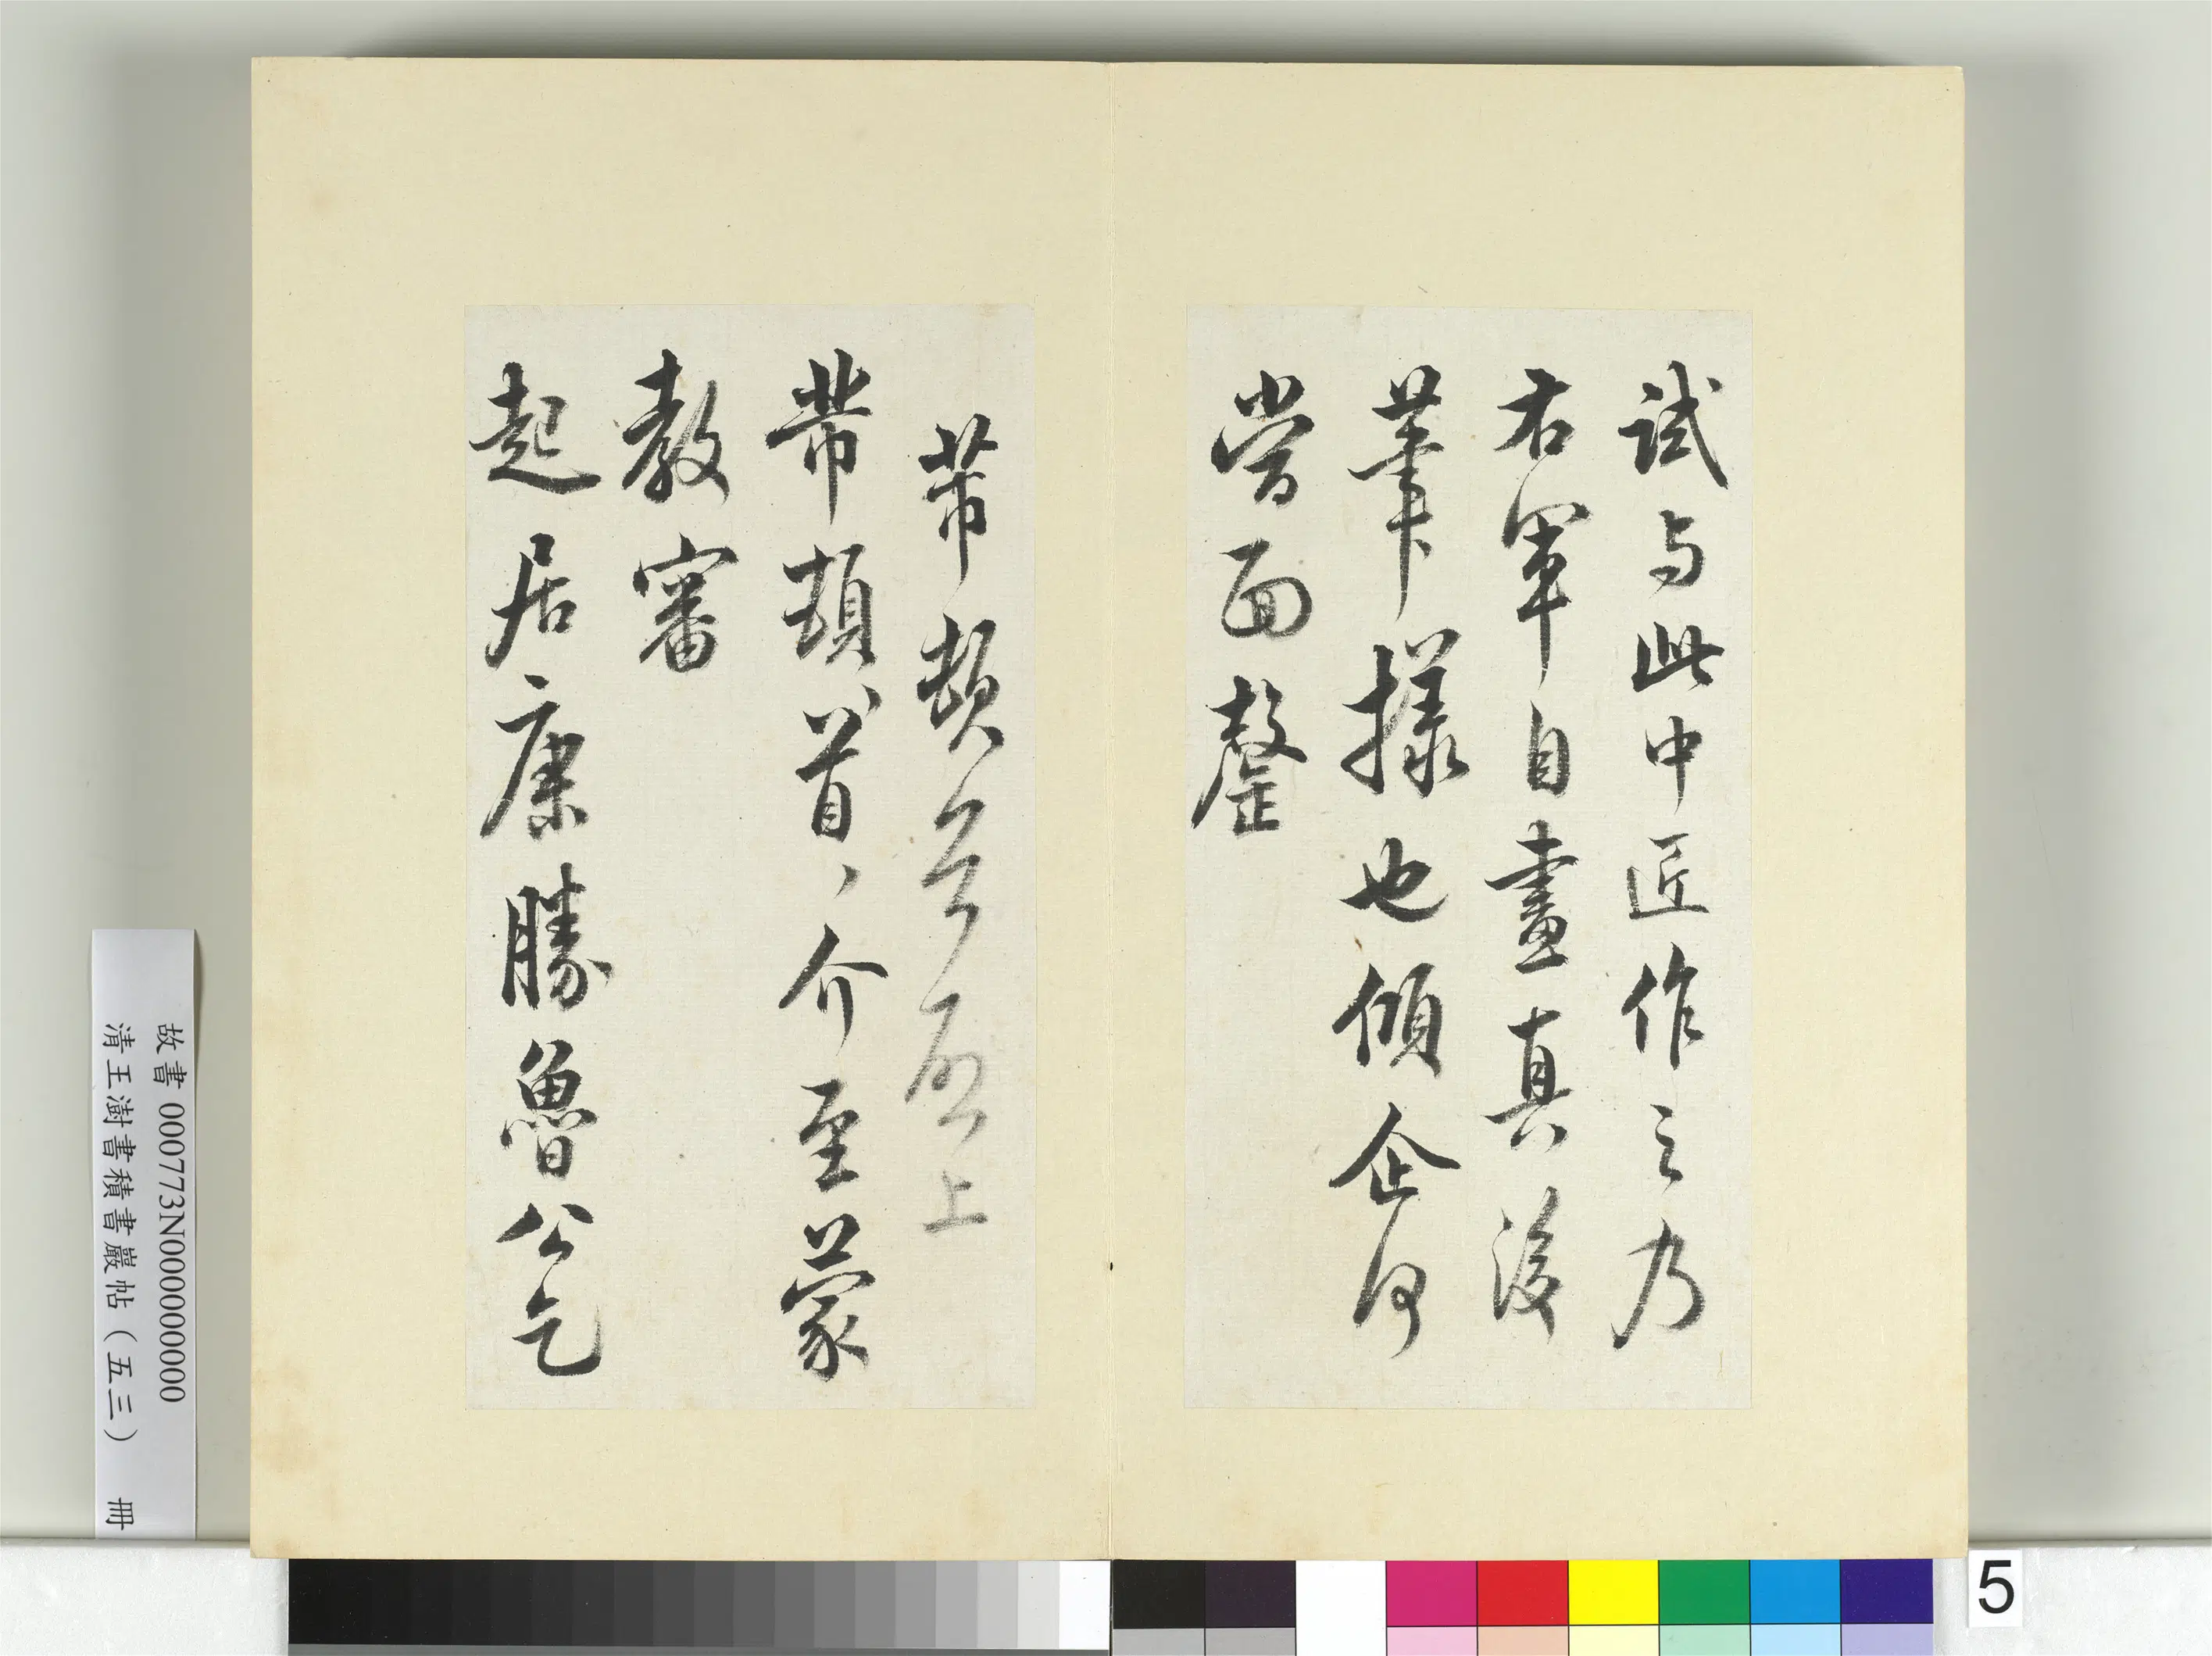 試与此中匠作之乃
右軍自畫真後
筆様也傾企何
嘗面罄
芾頓首啟上
芾頓〻首〻介至蒙
教審
起居康勝魯公乞
故書 000773N000000000
清王澍書積書巖帖（五三） 冊
5